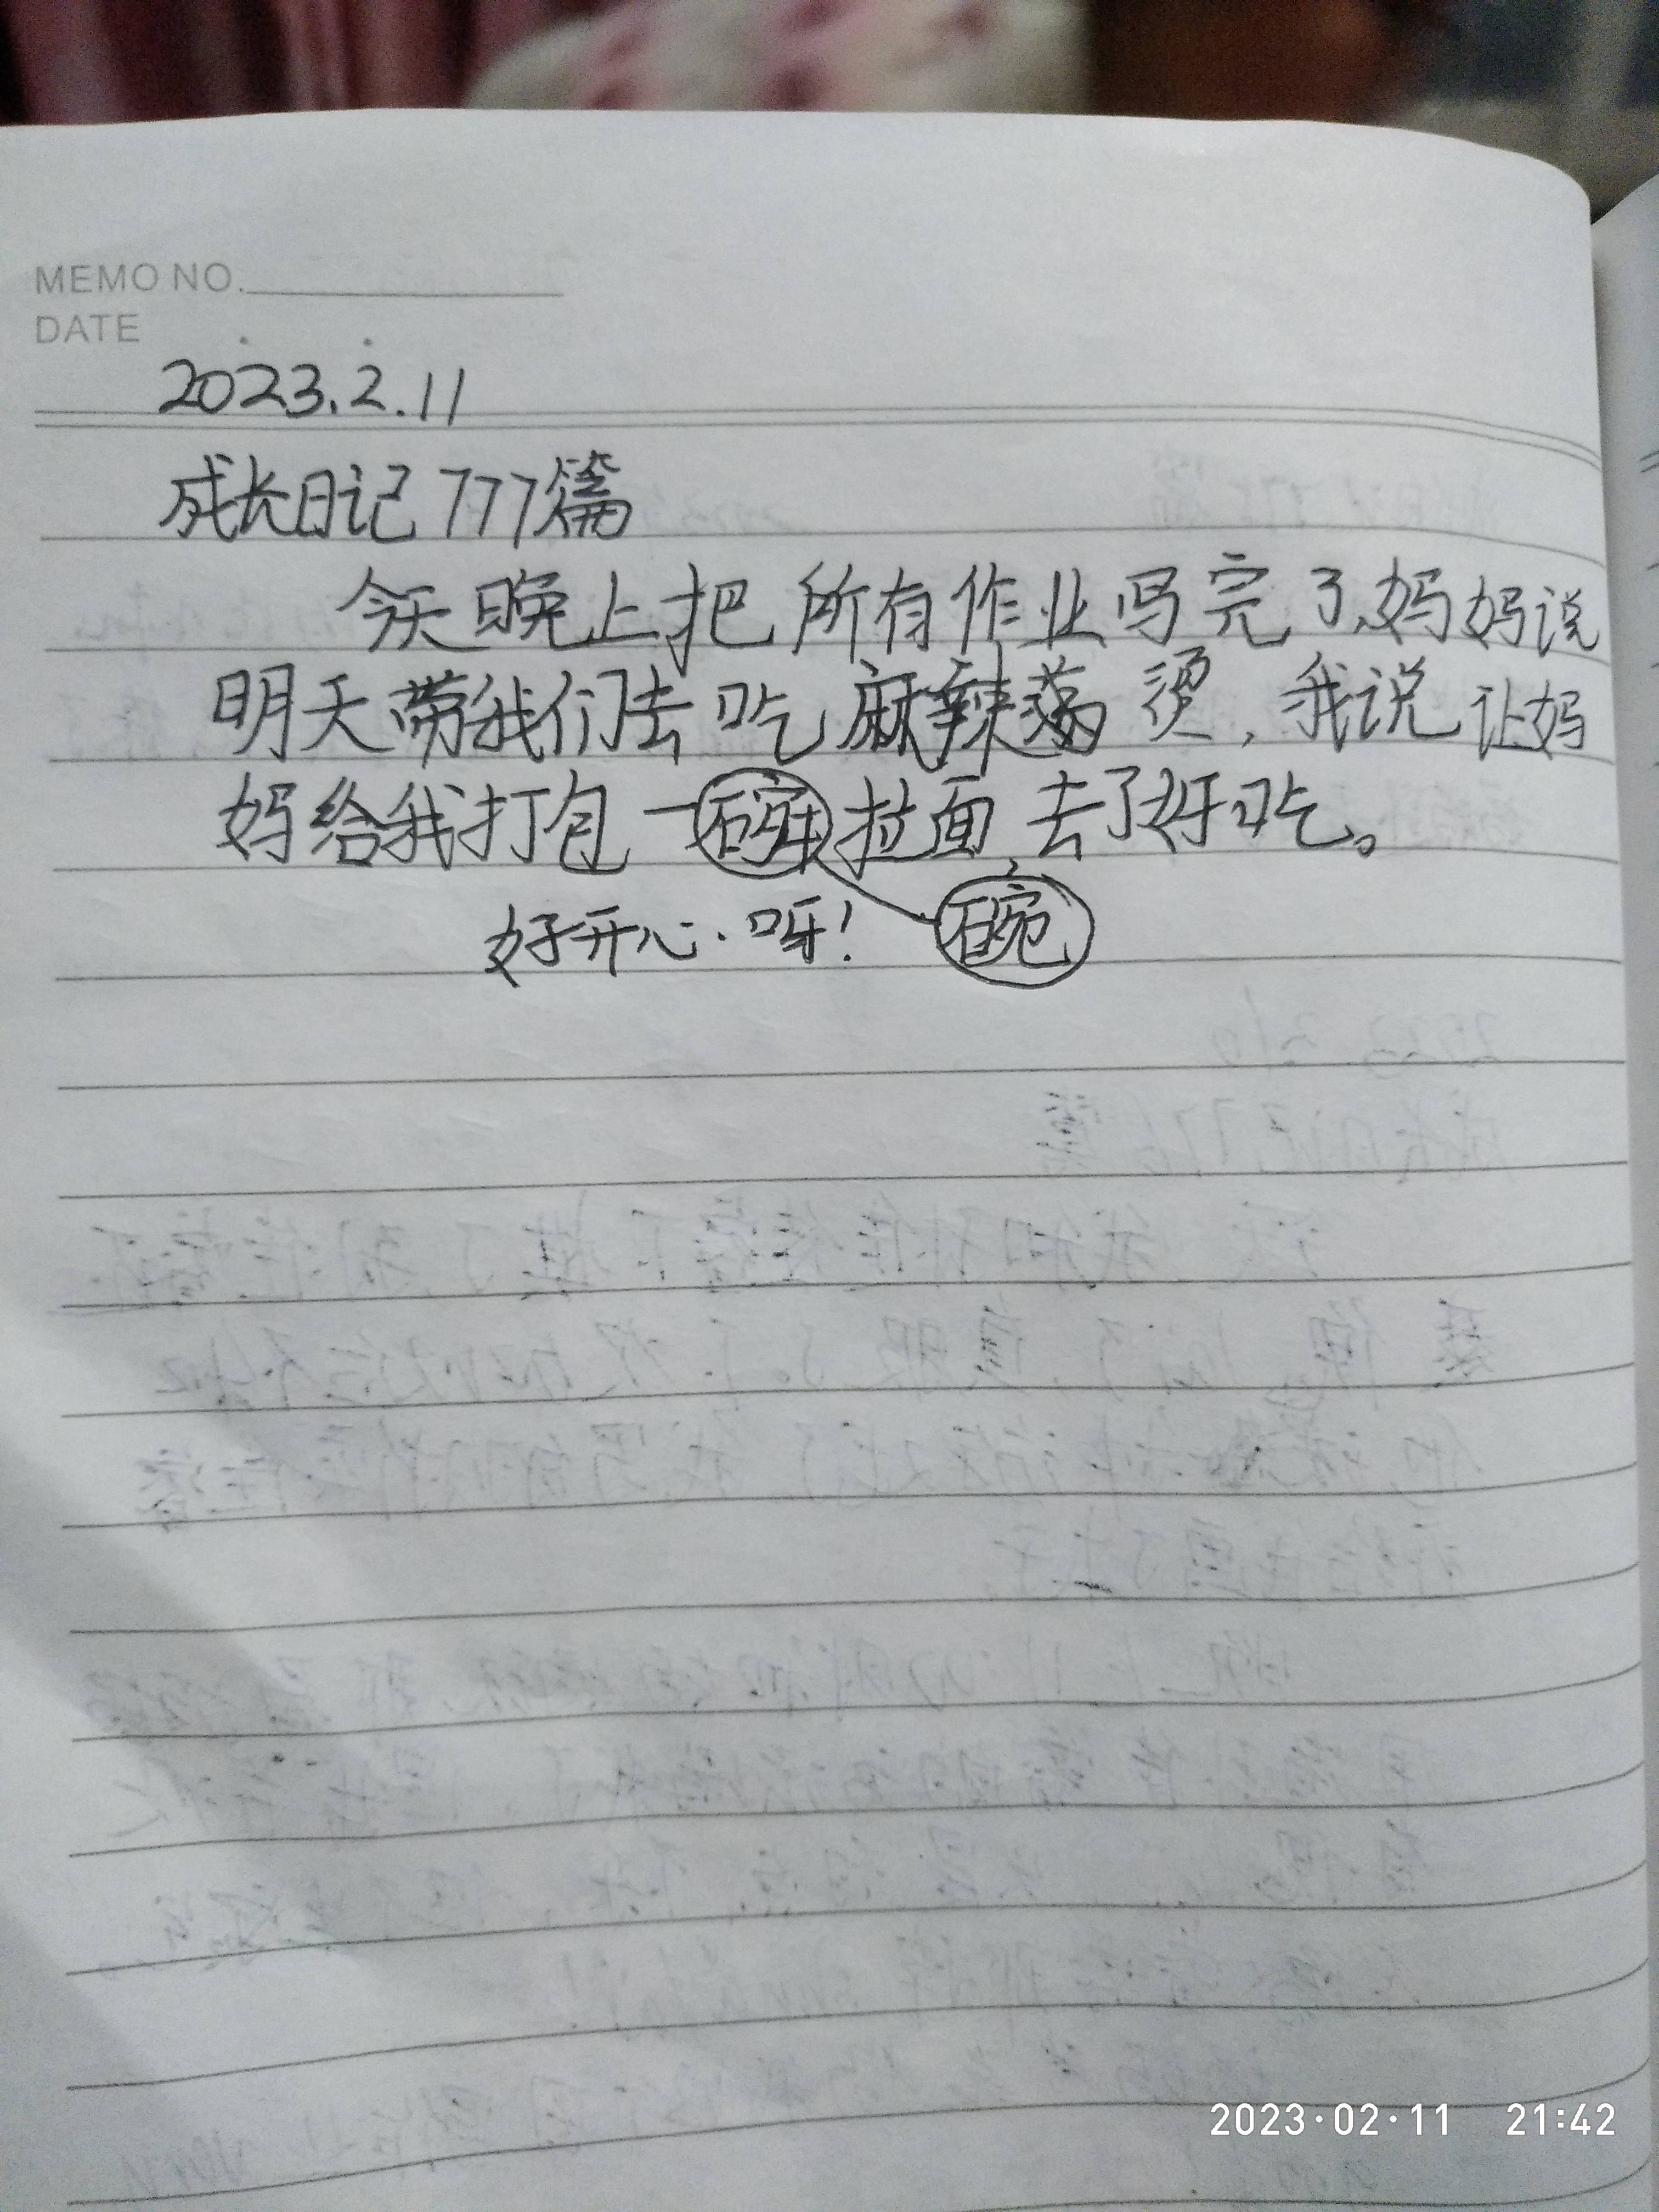 MEMO NO.
DATE
2023.2.11
成长日记777篇
今天晚上把所有作业写完了,妈妈说
明天带我们去吃麻辣烫,我说让妈
妈给我打包一碗拉面,去了好吃。
好开心呀!碗
2023.02.11 21:42